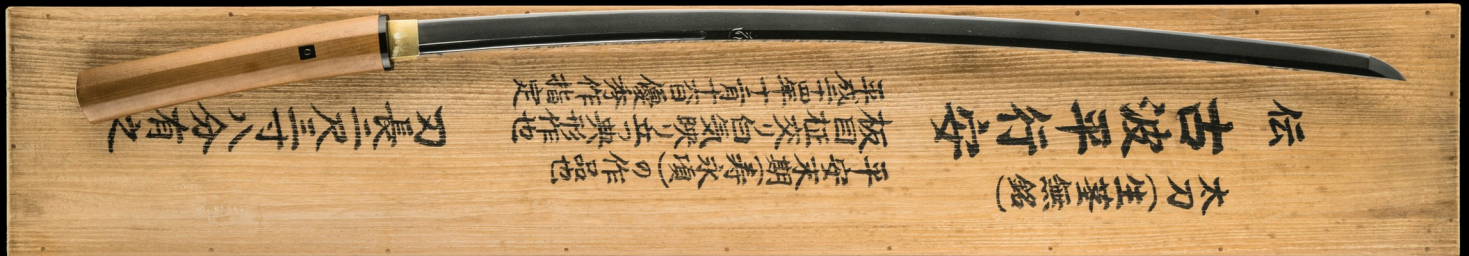 太刀(生茎無銘)
伝 古波平行安
平安末期(寿永頃)の作品也
板目柾交り白気映り立つ典型作也
平成二十四年十二月十六日優秀作指定
刃長二尺三寸八分有之